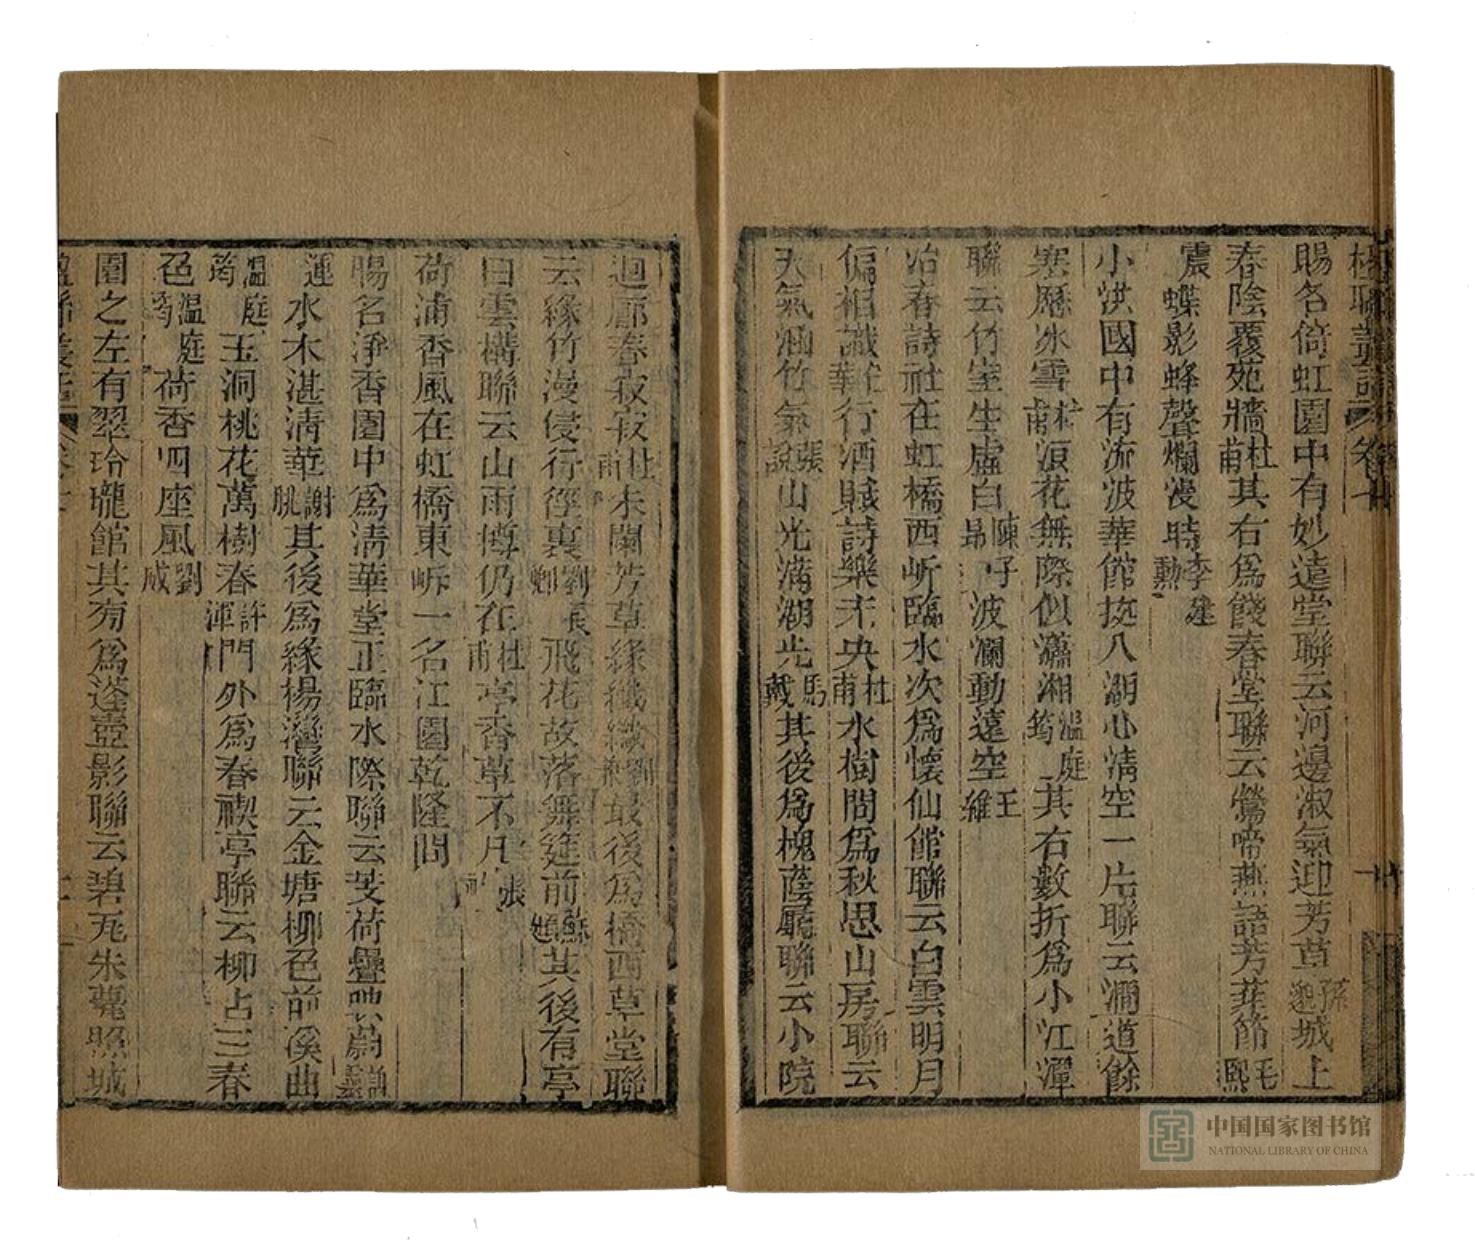 楹聯叢話 卷十
賜名倚虹園中有妙遠堂聯云河邊淑氣迎芳草孫逖城上
春陰覆苑牆杜甫其右爲餞春堂聯云鶯啼燕語芳菲節毛熙
震蝶影蜂聲爛漫時李建勳
小洪園中有流波華館挾八湖心淸空一片聯云澗道餘
寒歷冰雪杜甫浪花無際似瀟湘溫庭筠其右數折爲小江潭
聯云竹室生虛白陳子昂波瀾動遠空王維
冶春詩社在虹橋西岍臨水次爲懷仙館聯云白雲明月
偏相識任華行酒賦詩樂未央杜甫水樹間爲秋思山房聯云
天氣涵竹氣張說山光滿湖光馬戴其後爲槐蔭廳聯云小院
迴廊春寂寂杜甫朱闌芳草綠纖纖劉兼最後爲橋西草堂聯
云綠竹漫侵行徑裏劉長卿飛花故落舞筵前蘇頲其後有亭
曰雲構聯云山雨樽仍在杜甫亭香草不凡張祜
荷浦香風在虹橋東岍一名江園乾隆間
賜名淨香園中爲淸華堂正臨水際聯云芰荷疊映蔚謝靈
運水木湛淸華謝朓其後爲綠楊灣聯云金塘柳色前溪曲
溫庭筠玉洞桃花萬樹春許渾門外爲春禊亭聯云柳占三春
色溫庭筠荷香四座風劉威
園之左有翠玲瓏館其有爲蓬壺影聯云碧瓦朱甍照城
楹聯叢話 卷十
中国国家图书馆
NATIONAL LIBRARY OF CHINA